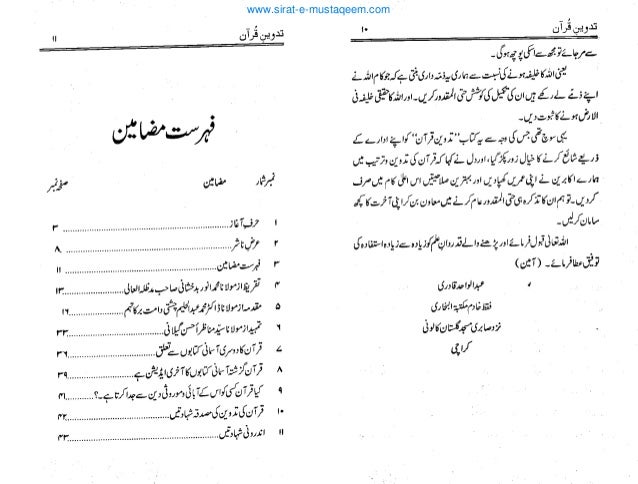 www.sirat-e-mustaqeem.com
تدوینِ قُرآن ۱۰
سے مرجائے تو مجھ سے اسکی پوچھ ہوگی۔
یعنی اللہ کا خلیفہ ہونے کی نسبت سے ہماری یہ ذمہ داری بنتی ہے کہ جو کام اللہ نے
اپنے ذمے لے رکھے ہیں ان کی تکمیل کی کوشش حتی المقدور کریں۔ اور اللہ کا حقیقی خلیفہ فی
الارض ہونے کا ثبوت دیں۔
یہی سوچ تھی جس کی وجہ سے یہ کتاب "تدوین قرآن" کو اپنے ادارے کے
ذریعے شائع کرنے کا خیال زور پکڑ گیا، اور دل نے کہا کہ قرآن کی تدوین و ترتیب میں
ہمارے اکابرین نے اپنی عمریں کھپا دیں اور بہترین صلاحیتیں اس اعلیٰ کام میں صرف
کردیں۔ تو ہم ان کا تذکرہ ہی حتی المقدور عام کرنے میں معاون بن کر اپنی آخرت کا کچھ
سامان کرلیں۔
اللہ تعالیٰ قبول فرمائے اور پڑھنے والے قدردانِ علم کو زیادہ سے زیادہ استفادہ کی
توفیق عطا فرمائے۔ (آمین)
عبدالواحد قادری
فقط خادم مکتبۃ البخاری
نزد صابری مسجد گلستان کالونی
کراچی
تدوینِ قُرآن ۱۱
فہرست مضامین
نمبرشمار مضامین صفحہ نمبر
۱ حرفِ آغاز ۳
۲ عرضِ ناشر ۸
۳ فہرست مضامین ۱۱
۴ تقریظ از مولانا محمد انور بدخشانی صاحب مدظلہ العالی ۱۳
۵ مقدمہ از مولانا ڈاکٹر محمد عبدالحلیم چشتی دامت برکاتہم ۱۶
۶ تمہید از مولانا سیّد مناظر أحسن گیلانی ۳۳
۷ قرآن کا دوسری آسمانی کتابوں سے تعلق ۳۶
۸ قرآن گزشتہ آسمانی کتابوں کا آخری ایڈیشن ہے ۳۹
۹ کیا قرآن کسی کو اس کے آبائی و موروثی دین سے جدا کرتا ہے۔؟ ۴۱
۱۰ قرآن کی تدوین کی مصدقہ شہادتیں ۴۲
۱۱ اندرونی شہادتیں ۴۳